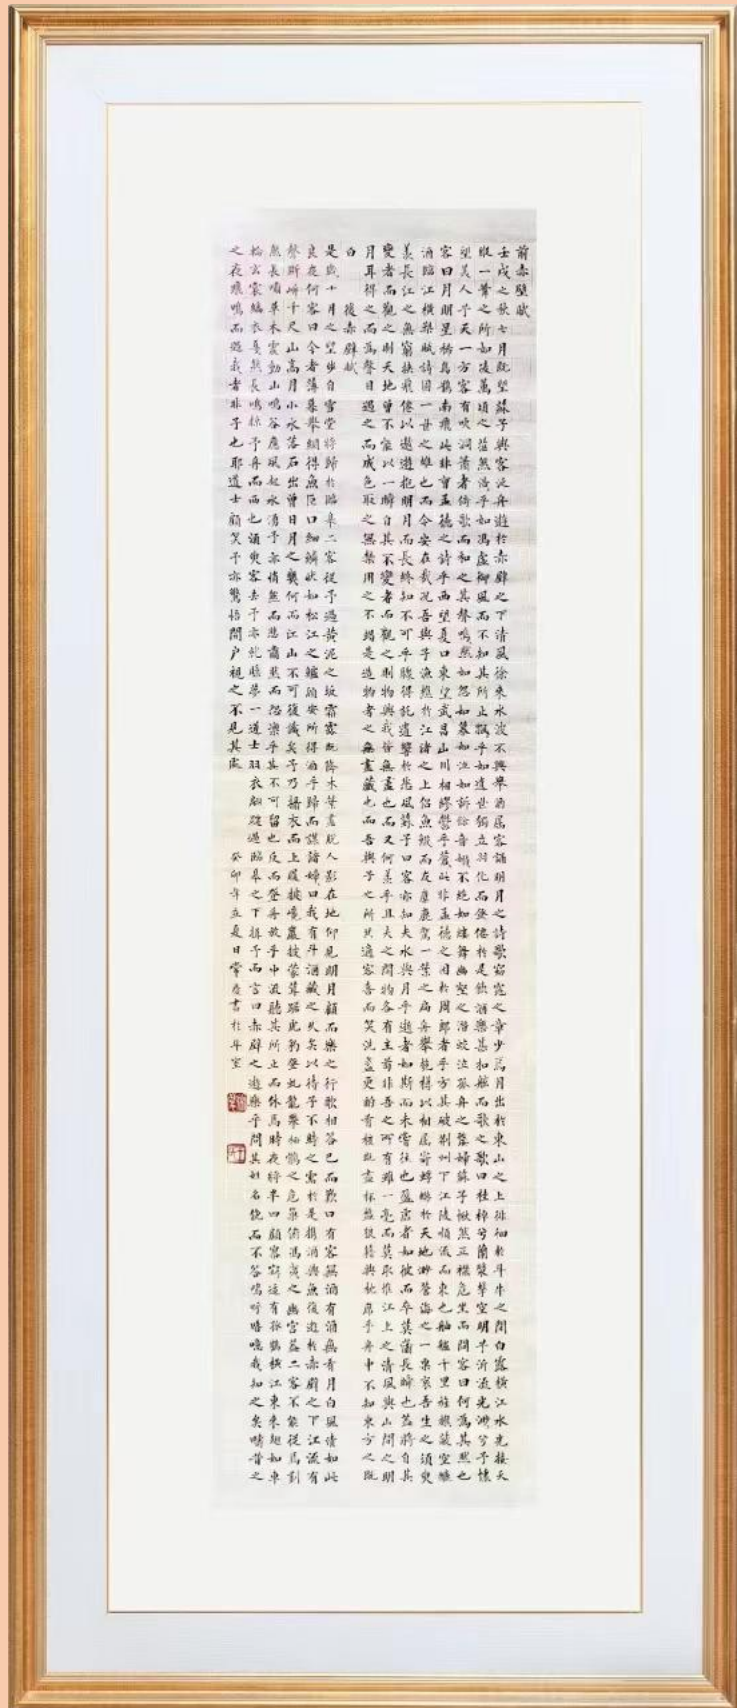 前赤壁賦
壬戌之秋七月既望蘇子與客泛舟遊於赤壁之下清風徐來水波不興舉酒屬客誦明月之詩歌窈窕之章少焉月出於東山之上徘徊於斗牛之間白露橫江水光接天
縱一葦之所如凌萬頃之茫然浩乎如馮虛御風而不知其所止飄乎如遺世獨立羽化而登僊於是飲酒樂甚扣舷而歌之歌曰桂棹兮蘭槳擊空明兮泝流光渺兮予懷
望美人兮天一方客有吹洞簫者倚歌而和之其聲嗚然如怨如慕如泣如訴餘音嫋不絕如縷舞幽壑之潛蛟泣孤舟之嫠婦蘇子愀然正襟危坐而問客曰何為其然也
客曰月明星稀烏鵲南飛此非曹孟德之詩乎西望夏口東望武昌山川相繆鬱乎蒼此非孟德之困於周郎者乎方其破荊州下江陵順流而東也舳艫千里旌旗蔽空釃
酒臨江橫槊賦詩固一世之雄也而今安在哉況吾與子漁樵於江渚之上侶魚鰕而友麋鹿駕一葉之扁舟舉匏樽以相屬寄蜉蝣於天地渺滄海之一粟哀吾生之須臾
羨長江之無窮挾飛僊以遨遊抱明月而長終知不可乎驟得託遺響於悲風蘇子曰客亦知夫水與月乎逝者如斯而未嘗往也盈虛者如彼而卒莫消長也蓋將自其
變者而觀之則天地曾不能以一瞬自其不變者而觀之則物與我皆無盡也而又何羨乎且夫之間物各有主苟非吾之所有雖一毫而莫取惟江上之清風與山間之明
月耳得之而為聲目遇之而成色取之無禁用之不竭是造物者之無盡藏也而吾與子之所共適客喜而笑洗盞更酌肴核既盡杯盤狼籍與枕席乎舟中不知東方之既
白 後赤壁賦
是歲十月之望步自雪堂將歸於臨皋二客從予過黃泥之坂霜露既降木葉盡脫人影在地仰見明月顧而樂之行歌相答已而歎曰有客無酒有酒無肴月白風清如此
良夜何客曰今者薄暮舉網得魚巨口細鱗狀如松江之鱸顧安所得酒乎歸而謀諸婦曰我有斗酒藏之久矣以待子不時之需於是攜酒與魚復遊於赤壁之下江流有
聲斷岸千尺山高月小水落石出曾日月之幾何而江山不可復識矣予乃攝衣而上履巉巖披蒙茸踞虎豹登虬龍攀栖鶻之危巢俯馮夷之幽宮蓋二客不能從焉劃
然長嘯草木震動山鳴谷應風起水湧予亦悄然而悲肅然而恐凜乎其不可留也反而登舟放乎中流聽其所止而休焉時夜將半四顧寂寥適有孤鶴橫江東來翅如車
輪玄裳縞衣戛然長鳴掠予舟而西也須臾客去予亦就睡夢一道士羽衣蹁躚過臨皋之下揖予而言曰赤壁之遊樂乎問其姓名俛而不答嗚呼噫嘻我知之矣疇昔之
之夜飛鳴而過我者非子也耶道士顧笑予亦驚悟開戶視之不見其處 癸卯年立夏日常慶書於斗室